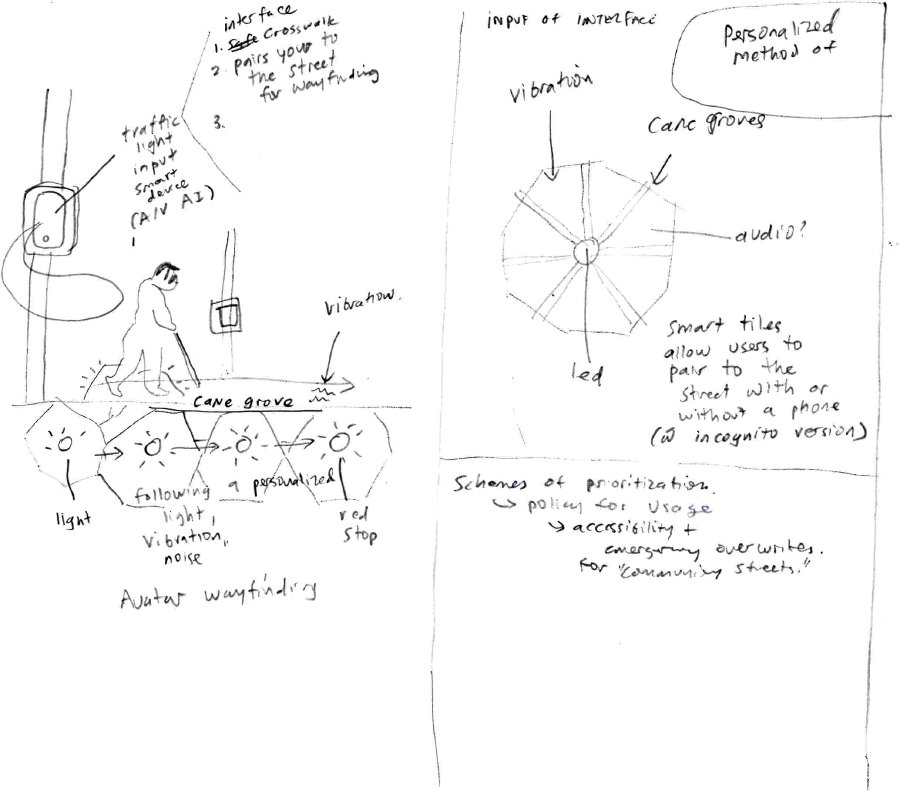 interface
1. Safe Crosswalk
2. pairs your to
the street
for wayfinding
3.
traffic
light
input
smart
device
(A/V AI)
vibration.
cane grove
light
following a personalized
light,
vibration,
noise
red
stop
Avatar wayfinding
INPUT OF INTERFACE
Personalized
method of
vibration
cane groves
audio?
led
Smart tiles
allow users to
pair to the
street with or
without a phone
incognito version)
Schemes of prioritization.
policy for usage
accessibility +
emergency overwrites.
for "community streets."